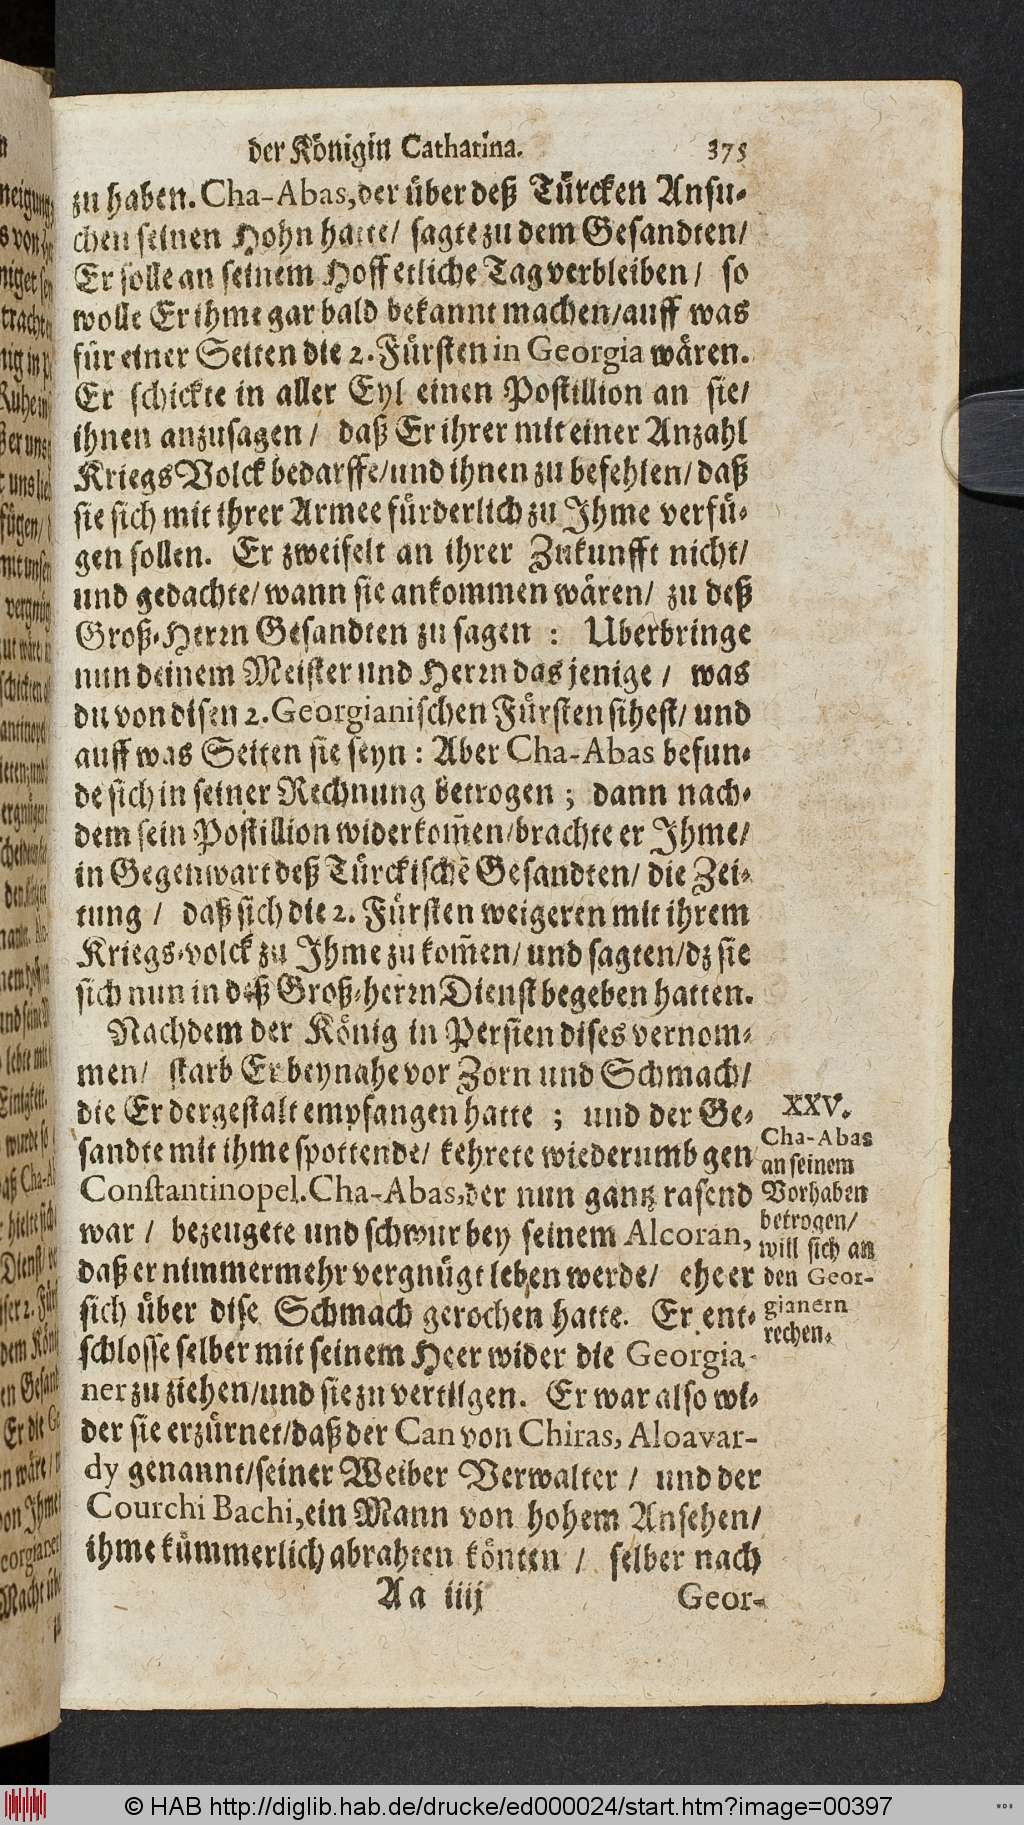 der Königin Catharina. 375
zu haben. Cha-Abas, der über deß Türcken Ansu-
chen seinen Hohn hatte/ sagte zu dem Gesandten/
Er solle an seinem Hoff etliche Tag verbleiben/ so
wolle Er ihme gar bald bekannt machen/auff was
für einer Seiten die 2. Fürsten in Georgia wären.
Er schickte in aller Eyl einen Postillion an sie/
ihnen anzusagen/ daß Er ihrer mit einer Anzahl
Kriegs Volck bedarffe/und ihnen zu befehlen/daß
sie sich mit ihrer Armee fürderlich zu Ihme verfü-
gen sollen. Er zweifelt an ihrer Zukunfft nicht/
und gedachte/wann sie ankommen wären/ zu deß
Groß-Herrn Gesandten zu sagen : Uberbringe
nun deinem Meister und Herrn das jenige / was
du von disen 2. Georgianischen Fürsten sihest/ und
auff was Seiten sie seyn : Aber Cha-Abas befun-
de sich in seiner Rechnung betrogen ; dann nach-
dem sein Postillion widerkom̃en/brachte er Ihme/
in Gegenwart deß Türckischẽ Gesandten/ die Zei-
tung / daß sich die 2. Fürsten weigeren mit ihrem
Kriegs-volck zu Ihme zu kom̃en/ und sagten/dz sie
sich nun in deß Groß-herrn Dienst begeben hatten.
Nachdem der König in Persien dises vernom-
men/ starb Er beynahe vor Zorn und Schmach/
die Er dergestalt empfangen hatte ; und der Ge-
sandte mit ihme spottende/ kehrete wiederumb gen
Constantinopel. Cha-Abas, der nun gantz rasend
war / bezeugete und schwur bey seinem Alcoran,
daß er nimmermehr vergnügt leben werde/ ehe er
sich über dise Schmach gerochen hatte. Er ent-
schlosse selber mit seinem Heer wider die Georgia-
ner zu ziehen/und sie zu vertilgen. Er war also wi-
der sie erzürnet/daß der Can von Chiras, Aloavar-
dy genannt/seiner Weiber Verwalter / und der
Courchi Bachi, ein Mann von hohem Ansehen/
ihme kümmerlich abrahten könten / selber nach
Aa iiij Geor-
XXV.
Cha-Abas
an seinem
Vorhaben
betrogen/
will sich an
den Geor-
gianern
rechen.
© HAB http://diglib.hab.de/drucke/ed000024/start.htm?image=00397